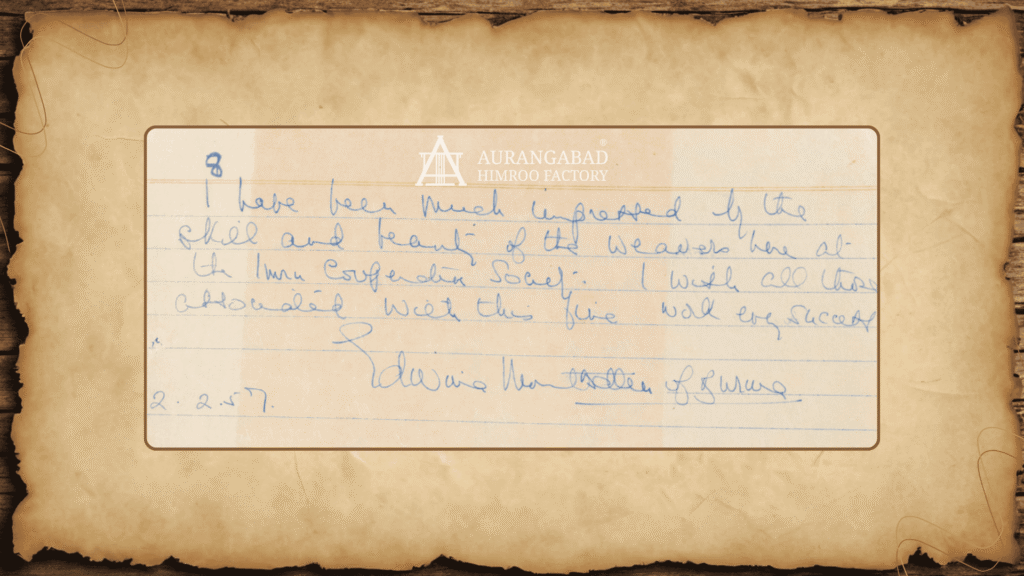 AURANGABAD
HIMROO FACTORY
8
I have been much impressed by the
skill and beauty of the weavers here at
the Imru Cooperative Society. I wish all those
associated with this fine work every success
Edwina Mountbatten of Burma
2.2.57.